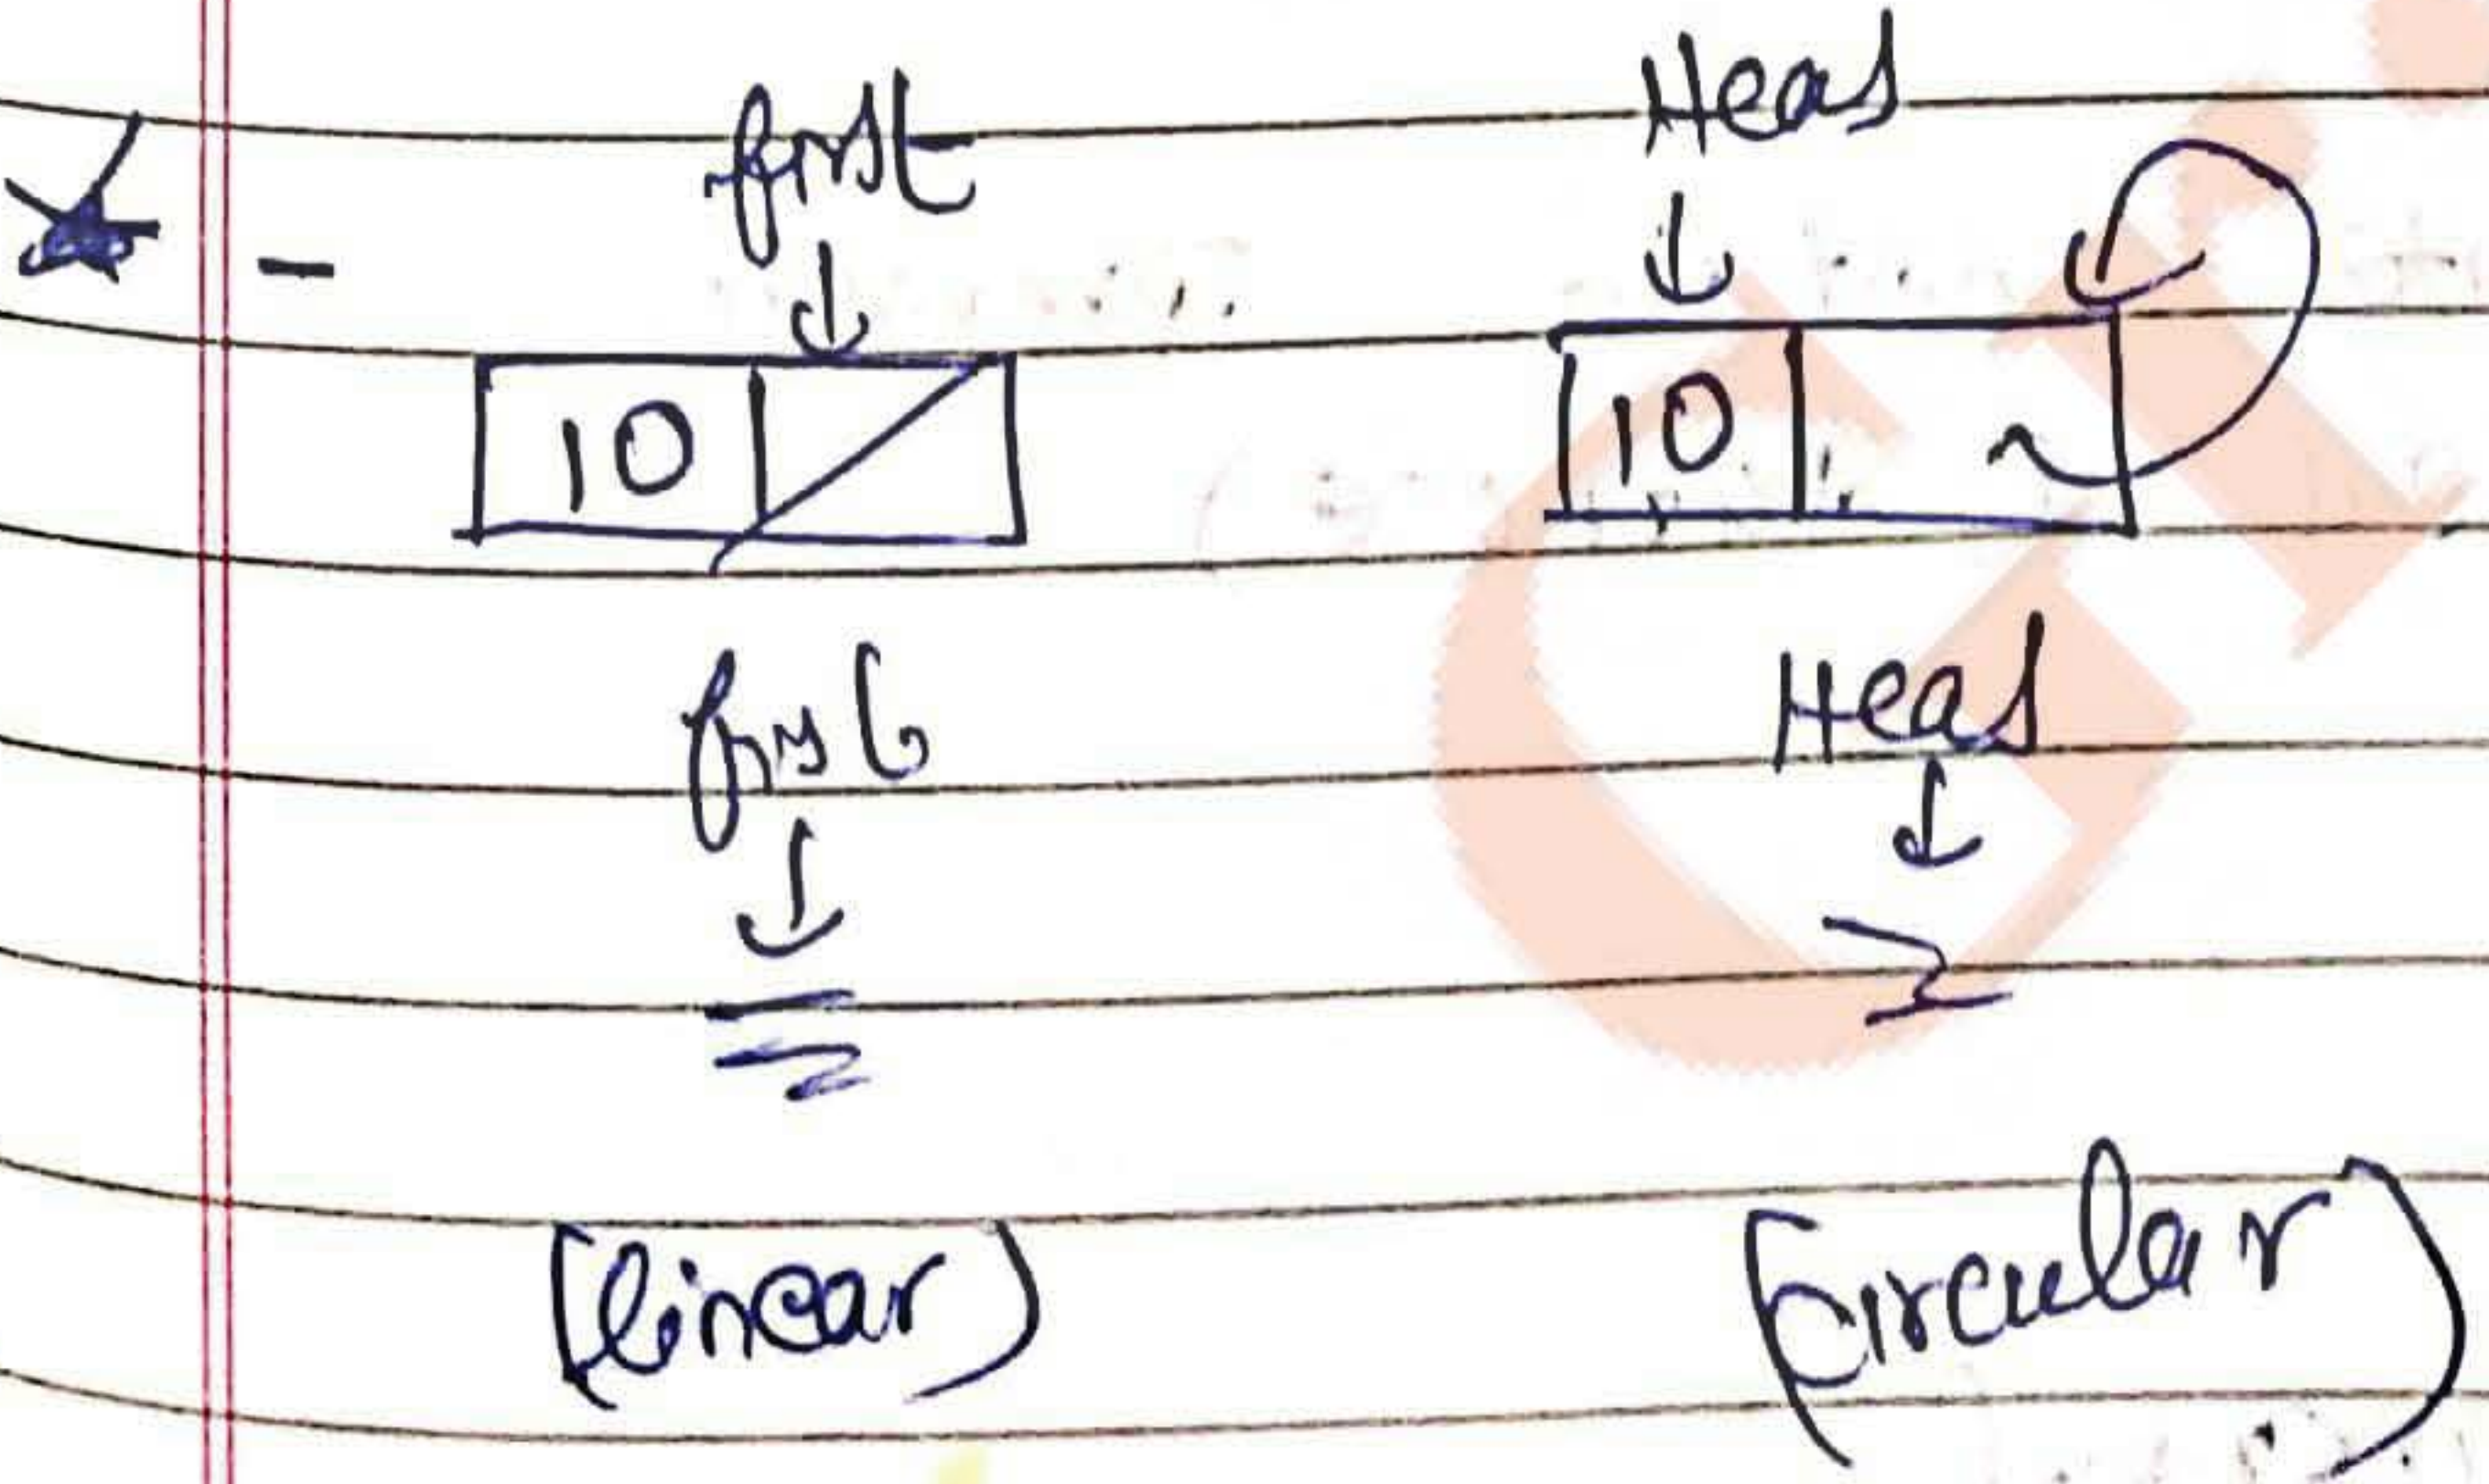 first Head
10 10
first Head
(linear) (circular)